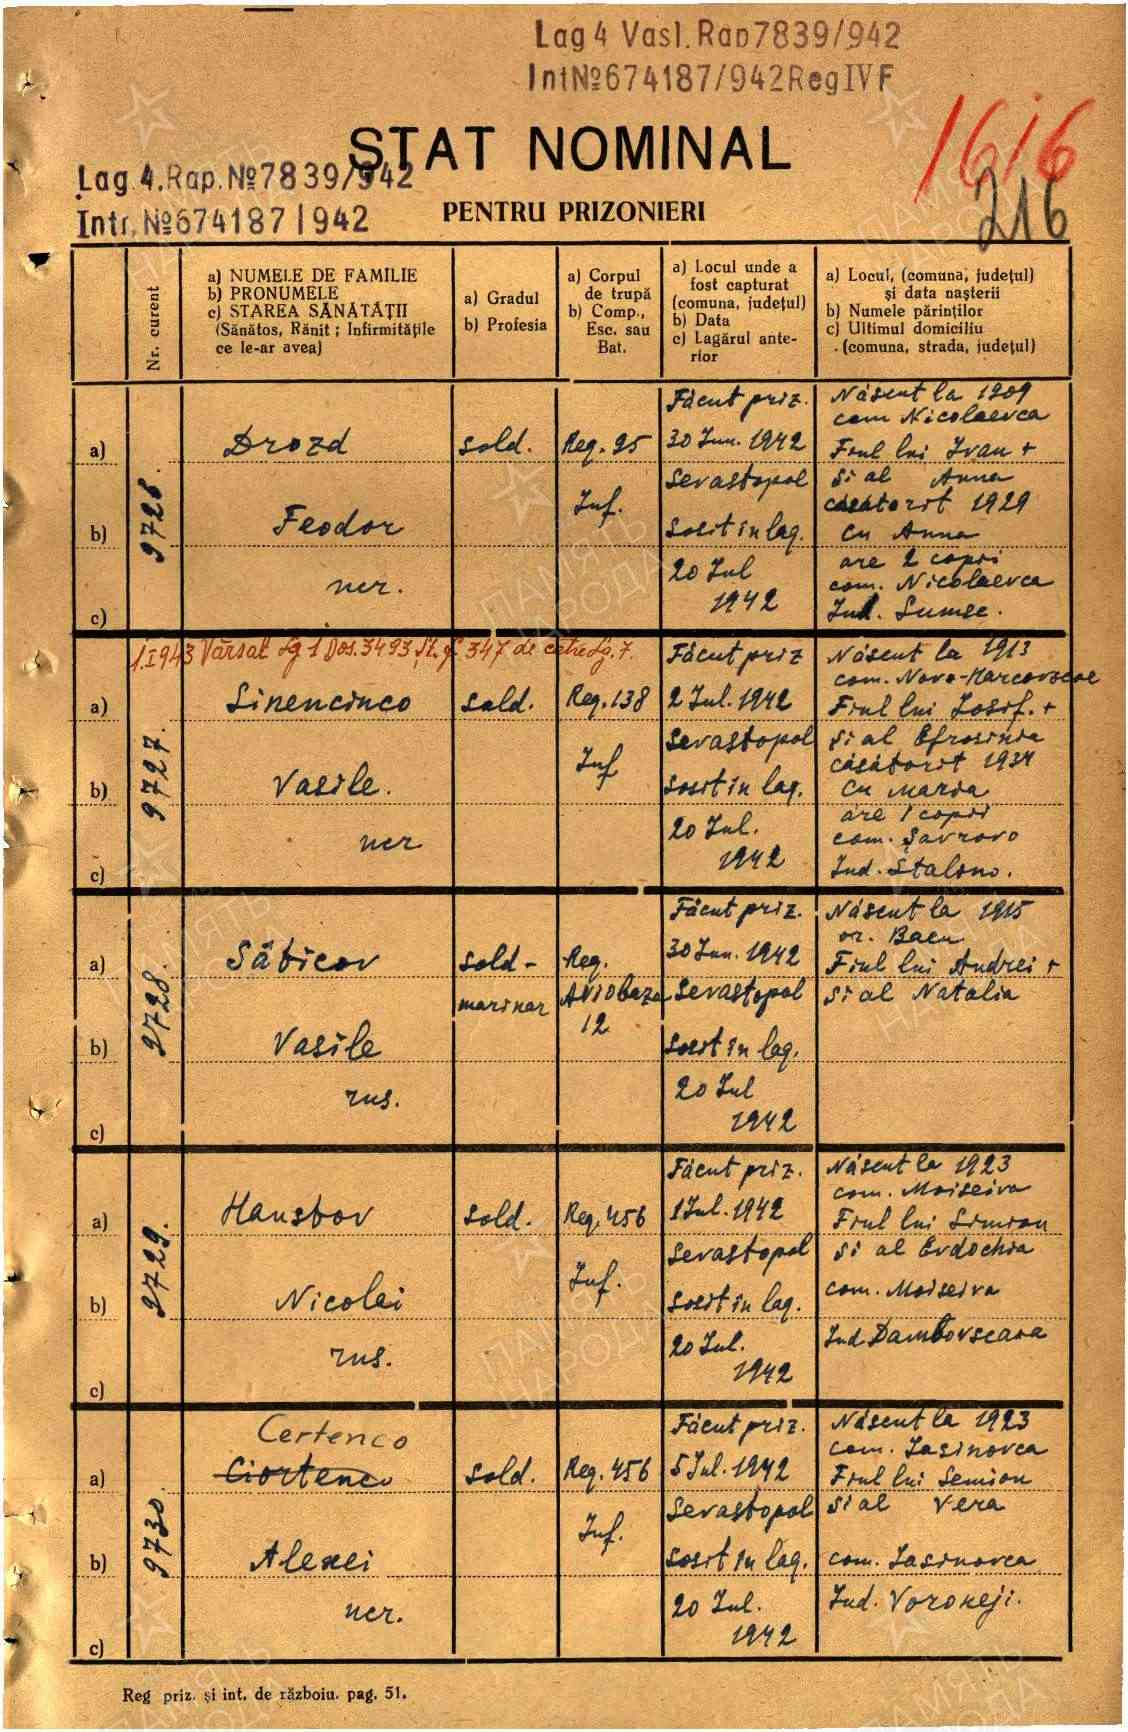 Lag 4 Vasl. Rap 7839/942
Int №674187/942 Reg IV F
1616
216
STAT NOMINAL
Lag 4. Rap. №7839/942
Intr. №674187/942
PENTRU PRIZONIERI
Nr. curent
a) NUMELE DE FAMILIE
b) PRONUMELE
c) STAREA SĂNĂTĂŢII
(Sănătos, Rănit ; Infirmităţile
ce le-ar avea)
a) Gradul
b) Profesia
a) Corpul
de trupă
b) Comp.,
Esc. sau
Bat.
a) Locul unde a
fost capturat
(comuna, judeţul)
b) Data
c) Lagărul ante-
rior
a) Locul, (comuna, judeţul)
şi data naşterii
b) Numele părinţilor
c) Ultimul domiciliu
(comuna, strada, judeţul)
a)
b)
c)
9726.
Drozd
Feodor
ucr.
sold.
Reg. 95
Inf.
Făcut priz.
30 Iun. 1942
Sevastopol
Sosit în lag.
20 Iul
1942
Născut la 1909
com Nicolaevca
Fiul lui Ivan +
si al Anna
căsătorit 1929
cu Anna
are 2 copii
com. Nicolaevca
Jud. Sumse.
1.I 943 Vărsat Lg 1 Dos. 3493 Șt. f. 347 de catre Lg. 7.
a)
b)
c)
9727.
Sinencinco
Vasile.
ucr
sold.
Reg. 138
Inf
Făcut priz
2 Iul. 1942
Sevastopol
Sosit în lag.
20 Iul.
1942
Născut la 1913
com. Novo-Marcovscoe
Fiul lui Iosif. +
si al Efrosinia
căsătorit 1934
cu Maria
are 1 copii
com. Șavrovo
Jud. Stalino.
a)
b)
c)
9728.
Săbicov
Vasile
rus.
sold-
marinar
Reg.
Aviobaza
12
Făcut priz.
30 Iun. 1942
Sevastopol
Sosit în lag.
20 Iul
1942
Născut la 1915
or. Bacu
Fiul lui Andrei +
si al Natalia
a)
b)
c)
9729.
Haustov
Nicolai
rus.
sold.
Reg. 456
Inf.
Făcut priz.
1 Iul. 1942
Sevastopol
Sosit în lag.
20 Iul.
1942
Născut la 1923
com. Moiseiva
Fiul lui Simion
si al Evdochia
com. Moiseiva
Jud Dambovscaia
a)
b)
c)
9730.
Certenco
Ciortenco
Alexei
ucr.
sold.
Reg. 456
Inf.
Făcut priz.
5 Iul. 1942
Sevastopol
Sosit în lag.
20 Iul.
1942
Născut la 1923
com. Iasinovca
Fiul lui Semion
si al Vera
com. Iasinovca
Jud. Voroneji.
Reg priz. şi int. de războiu. pag. 51.
ПАМЯТЬ
НАРОДА